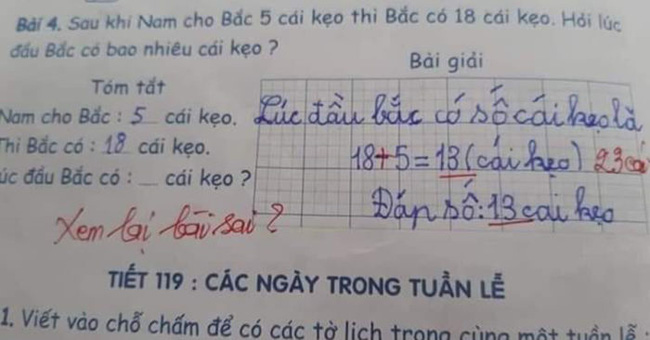 Bài 4. Sau khi Nam cho Bắc 5 cái kẹo thì Bắc có 18 cái kẹo. Hỏi lúc
đầu Bắc có bao nhiêu cái kẹo ?
Bài giải
Tóm tắt
Nam cho Bắc : 5 cái kẹo.
Lúc đầu bắc có số cái kẹo là
Thì Bắc có : 18 cái kẹo.
18+5=13 (cái kẹo) 23 cá
úc đầu Bắc có : __ cái kẹo ?
Đáp số: 13 cai kẹo
Xem lại bài sai ?
TIẾT 119 : CÁC NGÀY TRONG TUẦN LỄ
1. Viết vào chỗ chấm để có các tờ lịch trong cùng một tuần lễ :